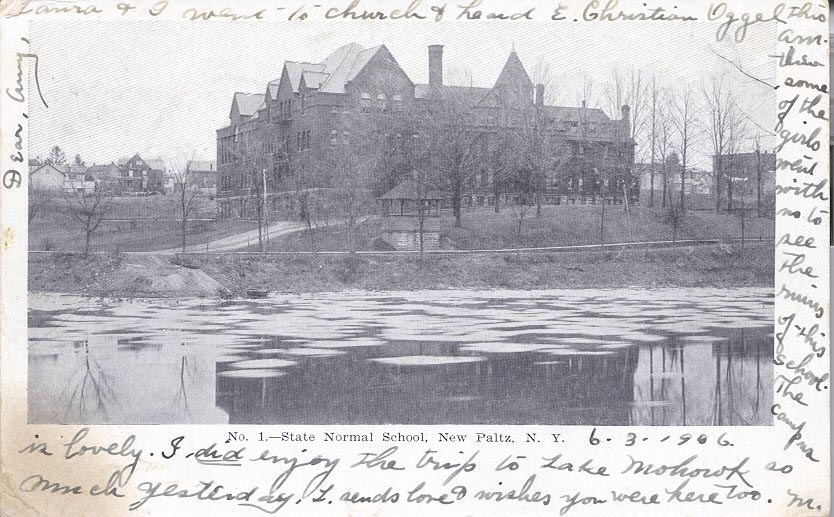 Dear Amy,
Laura & I went to church & heard E. Christian Oggel this
am.
then
some
of the
girls
went
with
us to
see
the
ruins
of this
school.
The
campus
No. 1.—State Normal School, New Paltz, N. Y. 6-3-1906.
is lovely. I did enjoy the trip to Lake Mohowk so
much yesterday. L. sends love & wishes you were here too. M.